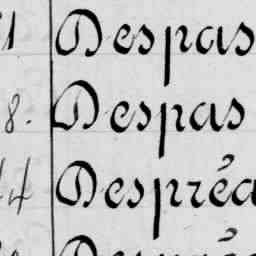 1 Despas
8. Despas
4 Despréa